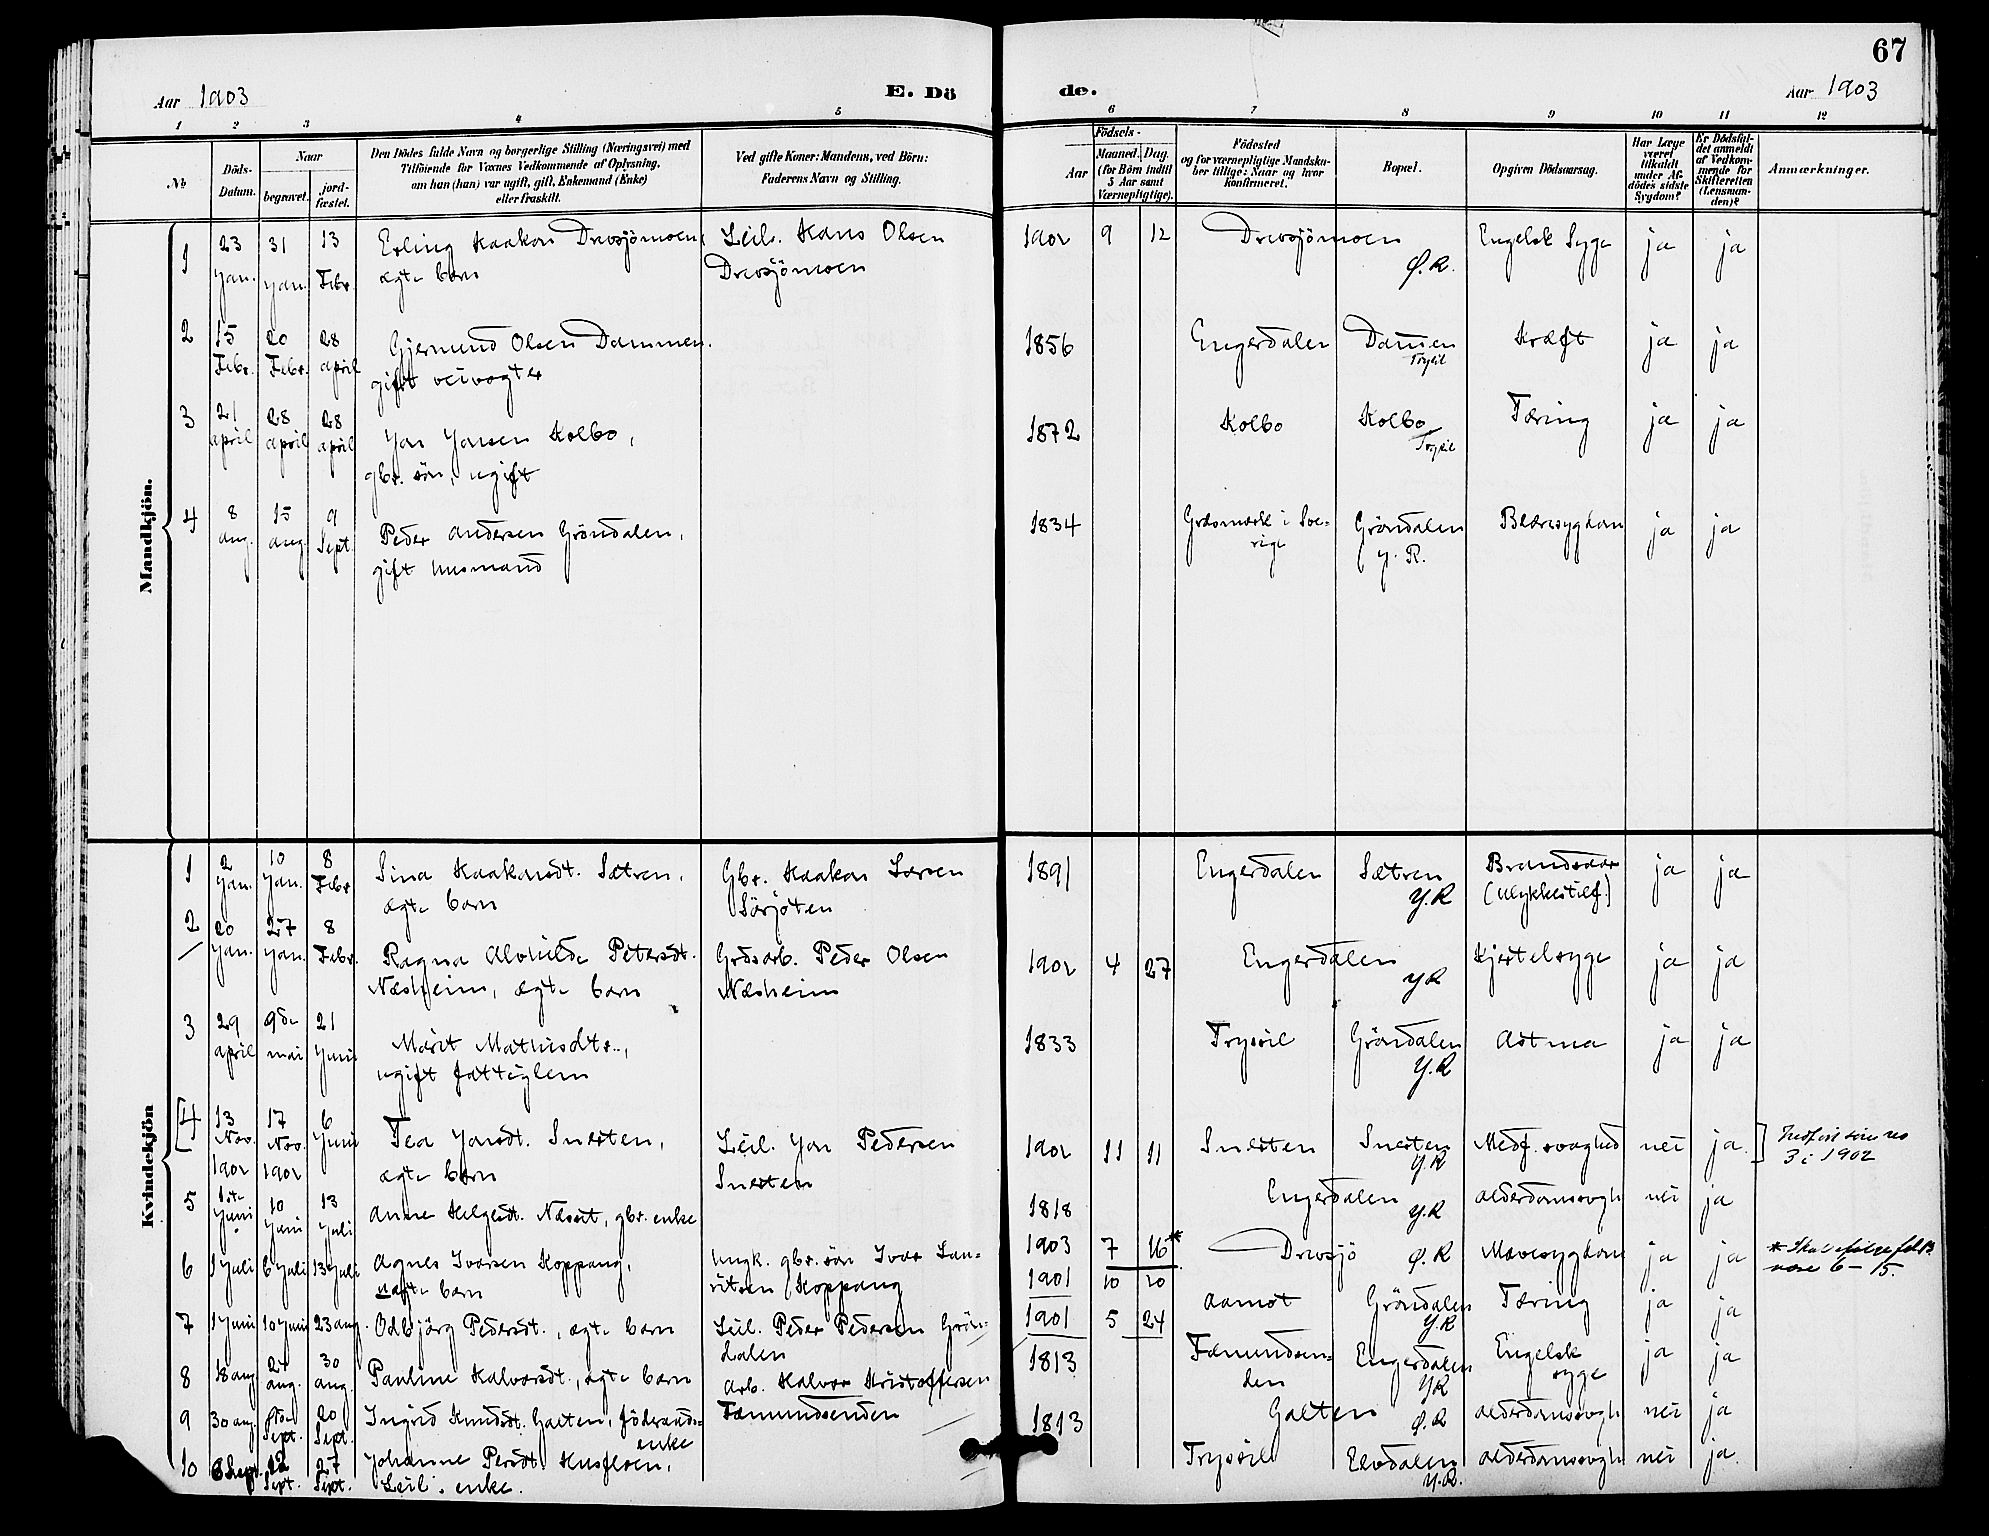 67
Aar 1903
E. Dö
de.
Aar 1903
1 2 3 4 5
6 7 8 9 10 11 12
No
Döds-
Datum.
Naar
begravet.
jord-
fæstet.
Den Dödes fulde Navn og borgerlige Stilling (Næringsvei) med
Tilföiende for Voxnes Vedkommende af Oplysning,
om han (hun) var ugift, gift, Enkemand (Enke)
eller fraskilt.
Ved gifte Koner: Mandens, ved Börn:
Faderens Navn og Stilling.
Födsels-
Aar
Maaned. Dag
(for Börn indtil
5 Aar samt
Værnepligtige).
Födested
og for værnepligtige Mandska-
ber tillige: Naar og hvor
konfirmeret.
Bopæl.
Opgiven Dödsaarsag.
Har Læge
været
tilkaldt
under Af-
dödes sidste
Sygdom?
Er Dödsfal-
det anmeldt
af Vedkom-
mende for
Skifteretten
(Lensman-
den)?
Anmærkninger.
Mandkjön.
1 23 Jan. 31 Jan. 13 Febr. Erling Haakon Drevsjömoen, Leil. Hans Olsen
ægte barn Drevsjömoen
1902 9 12 Drevsjömoen Ø.R. Engelsk Syge ja ja
2 15 Febr. 20 Febr. 28 april Gjermund Olsen Dammen.
gift veivogter
1856 Engerdalen Dammen Trysil Kræft ja ja
3 21 april 28 april 28 april Jon Jonsen Kolbo,
gbr. sön, ugift
1872 Kolbo Kolbo Trysil Tæring ja ja
4 8 aug. 15 aug. 9 Sept. Peder Andersen Gröndalen,
gift husmand
1834 Gräsmark i Sve-
rige Gröndalen Y.R. Blæresygdom ja ja
Kvindekjön
1 2 Jan. 10 Jan. 8 Febr. Sina Haakonsdt. Sætren, Gbr. Haakon Larsen
ægte barn
1891 Engerdalen Sætren Y.R Brandsaar
(ulykkestilf.) ja ja
2 20 Jan. 27 Jan. 8 Febr. Ragna Alvhilde Petersdt. Grdsarb. Peder Olsen
Næsheim, ægte barn Næsheim
1902 4 27 Engerdalen YR Kjertelsyge ja ja
3 29 april 9de mai 21 Juni Marit Mathisdtr.,
ugift fattiglem
1833 Trysil Gröndalen Y.R Astma ja ja
[4 13 Nov. 1902 17 Nov. 1902 6 Juni Tea Jonsdt. Snerten, Leil. Jon Pedersen
ægte barn Snerten
1902 11 11 Snerten Snerten Y.R Medf. svaghed nei ja ]
3 i 1902
5 1ste Juni 10 Juni 13 Juli Anne Helgesdt. Næsset, gbr. enke
1818 Engerdalen Y.R Alderdomssvagh nei ja
6 1 Juli 6 Juli 13 Juli Agnes Ivarsen Koppang, ungk. gbr. sön Ivar Lau-
uægte barn ritsen Koppang
1903 7 16* Drevsjö Ø.R Mavesygdom ja ja
1901 10 20
* Skal ifölge
være 6–15.
7 1 Juni 10 Juni 23 aug. Odbjörg Pedersdt., ægte barn Leil. Peder Pedersen Grön-
dalen
1901 5 24 Aamot Gröndalen Y.R Tæring ja ja
8 18 aug 24 aug. 30 aug. Pauline Halvorsdt., ægte barn Arb. Halvor Kristoffersen
Fæmundsenden
1813 Fæmundsen-
den Engerdalen YR Engelsk
syge ja ja
9 30 aug. Sept. 20 Sept. Ingrid Knudsdt. Galten, föderaads-
enke
1813 Galten Ø.R Alderdomssvagh nei ja
10 Sept. 22 Sept. 27 Sept. Johanne Persdt. Husfloen,
Leil. enke.
Trysil Elvdalen Y.R. Alderdomssvagh nei ja.